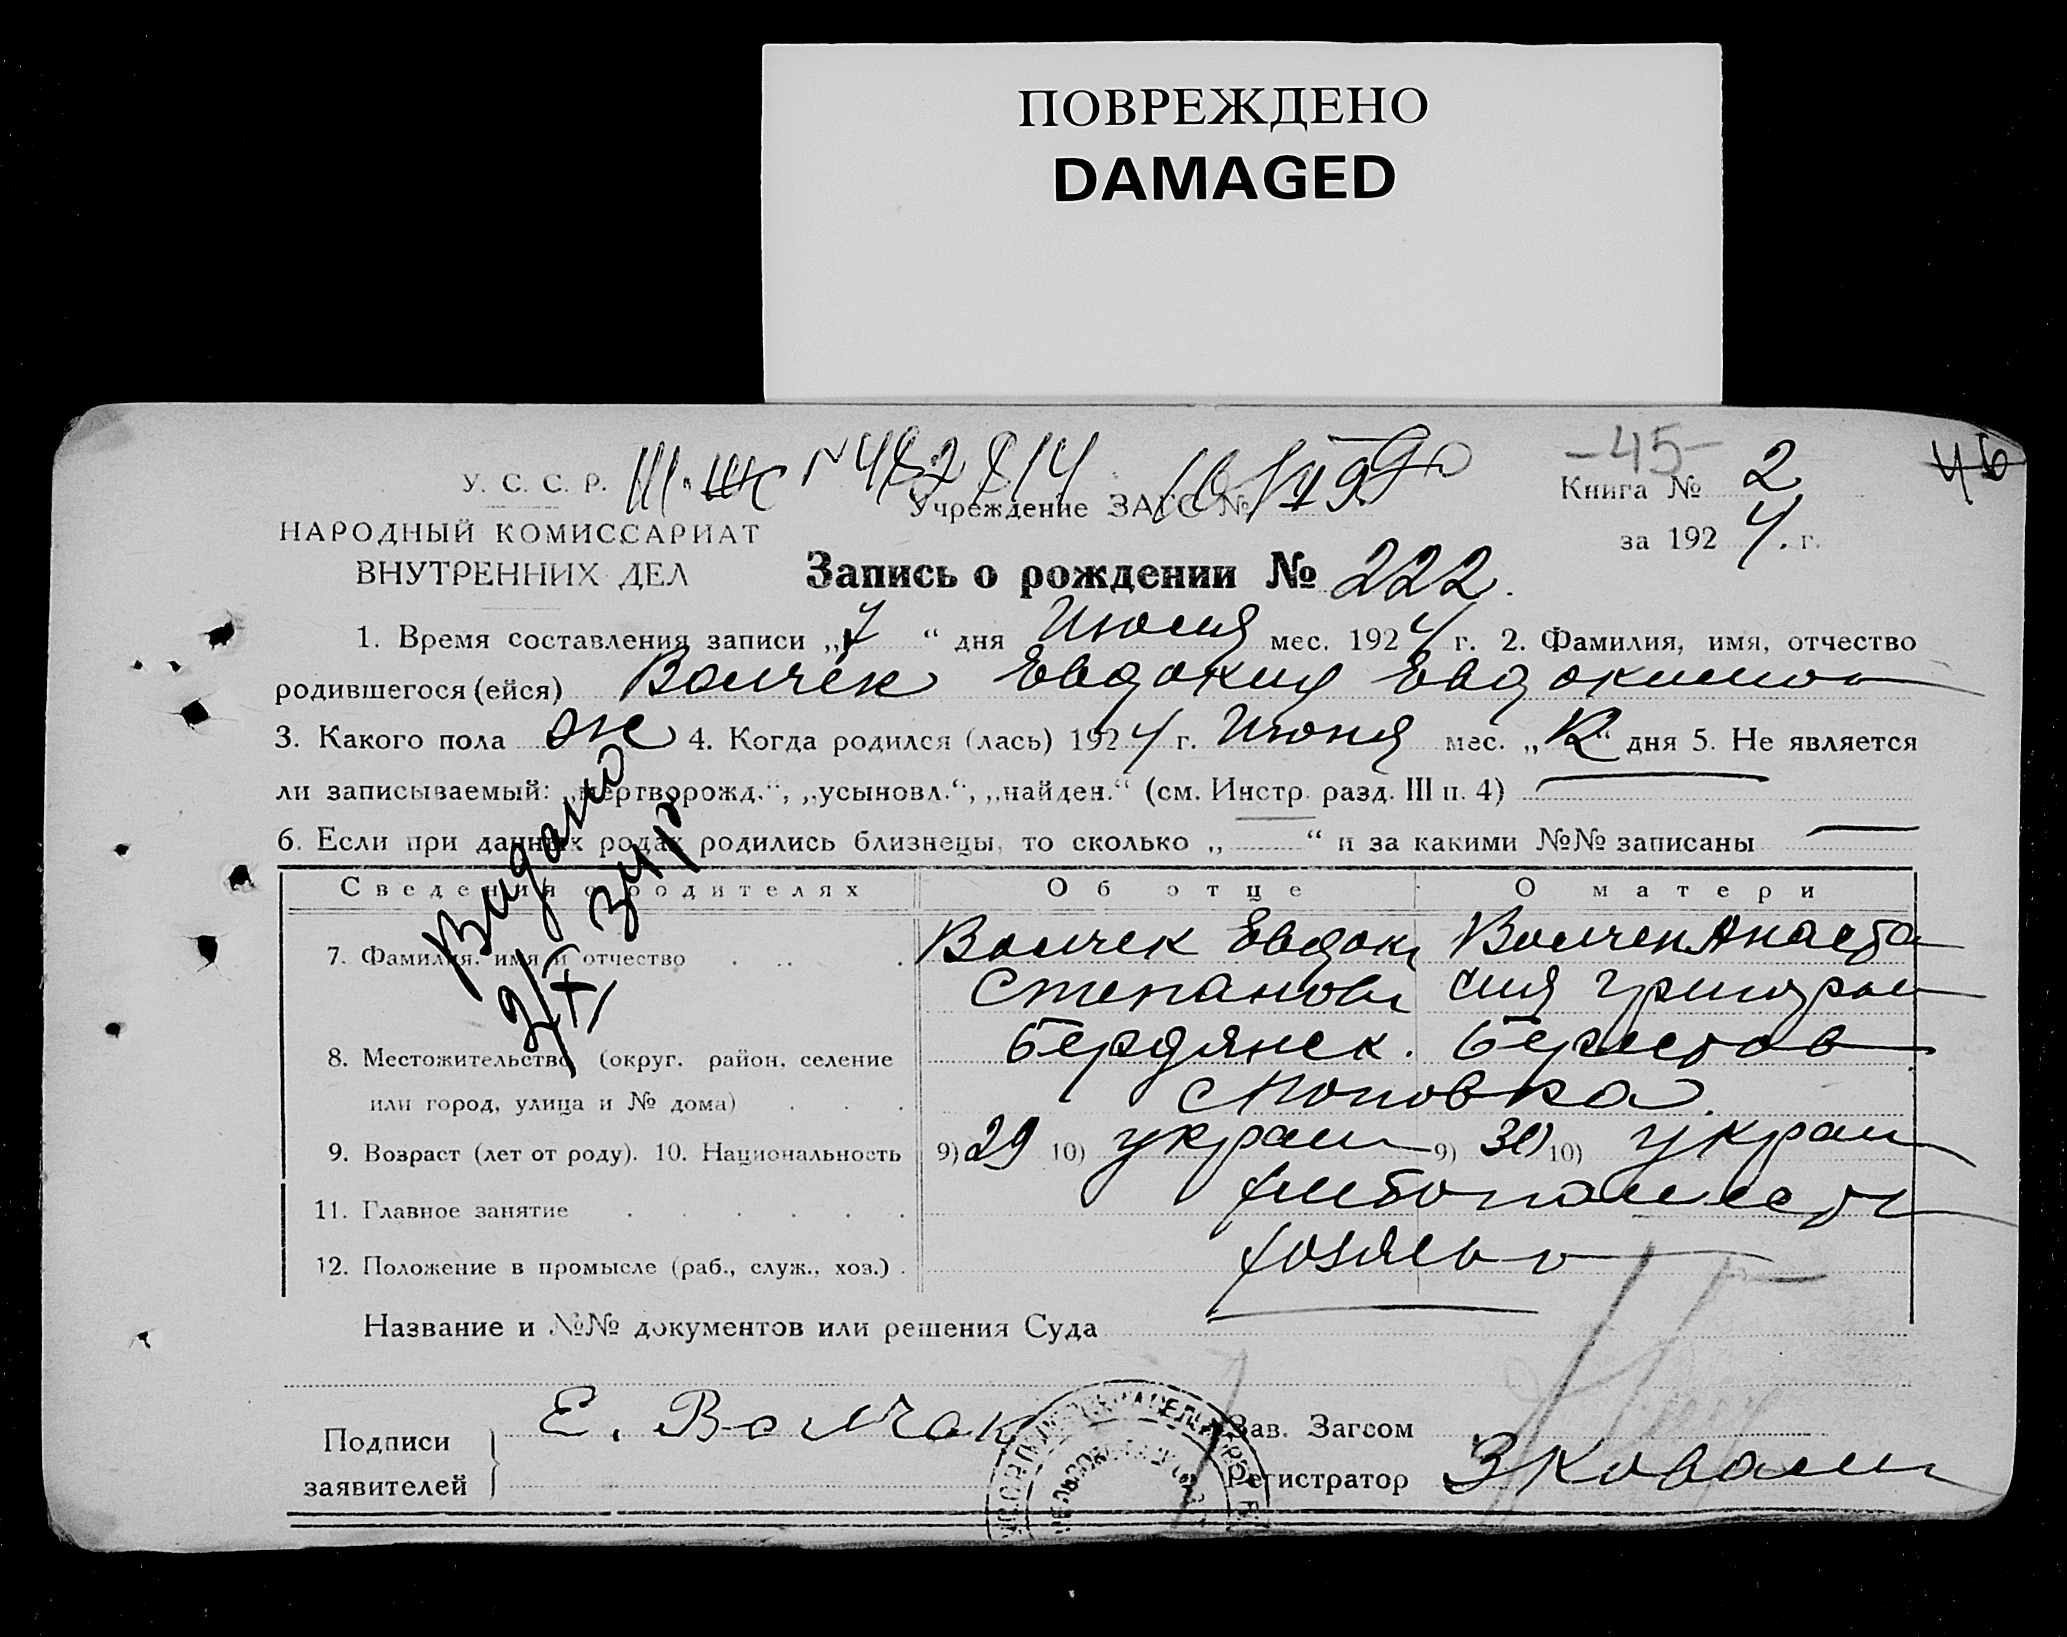 ПОВРЕЖДЕНО
DAMAGED
-45-
46
У. С. С. Р.
Учреждение ЗАГС №
Книга № 2
НАРОДНЫЙ КОМИССАРИАТ
ВНУТРЕННИХ ДЕЛ
за 1924 г.
Запись о рождении № 222.
1. Время составления записи „7“ дня Июля мес. 1924 г. 2. Фамилия, имя, отчество
родившегося (ейся) Волчек Евдокия Евдокимов
3. Какого пола ж 4. Когда родился (лась) 1924 г. Июня мес. „ “ дня 5. Не является
ли записываемый: „мертворожд.“, „усыновл.“, „найден.“ (см. Инстр. разд. III п. 4)
6. Если при данных родах родились близнецы, то сколько „ “ и за какими №№ записаны
Видано
Сведения о родителях Об отце О матери
7. Фамилия, имя и отчество Волчек Евдоки Волчек Анаста
Степанови сия Григорьев
8. Местожительство (округ, район, селение Бердянск. Берестов
или город, улица и № дома) с Поповка.
9. Возраст (лет от роду). 10. Национальность 9) 29 10) украин 9) 30 10) украин
11. Главное занятие хлебопашест
12. Положение в промысле (раб., служ., хоз.) хозяево
Название и №№ документов или решения Суда
Подписи заявителей Е. Волчак
Зав. Загсом
Регистратор ЗКовали